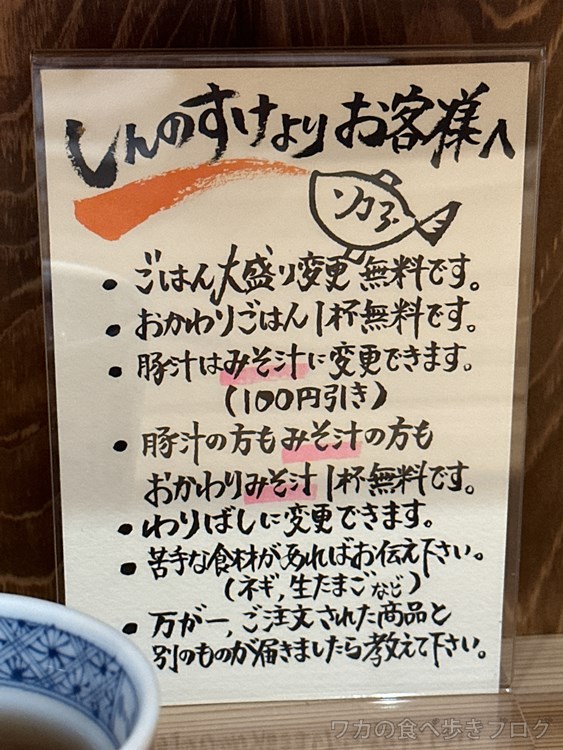 しんのすけよりお客様へ
・ごはん大盛り変更無料です。
・おかわりごはん1杯無料です。
・豚汁はみそ汁に変更できます。
(100円引き)
・豚汁の方もみそ汁の方も
おかわりみそ汁1杯無料です。
・わりばしに変更できます。
・苦手な食材があればお伝え下さい。
(ネギ,生たまごなど)
・万が一,ご注文された商品と
別のものが届きましたら教えて下さい。
ワカの食べ歩きブログ